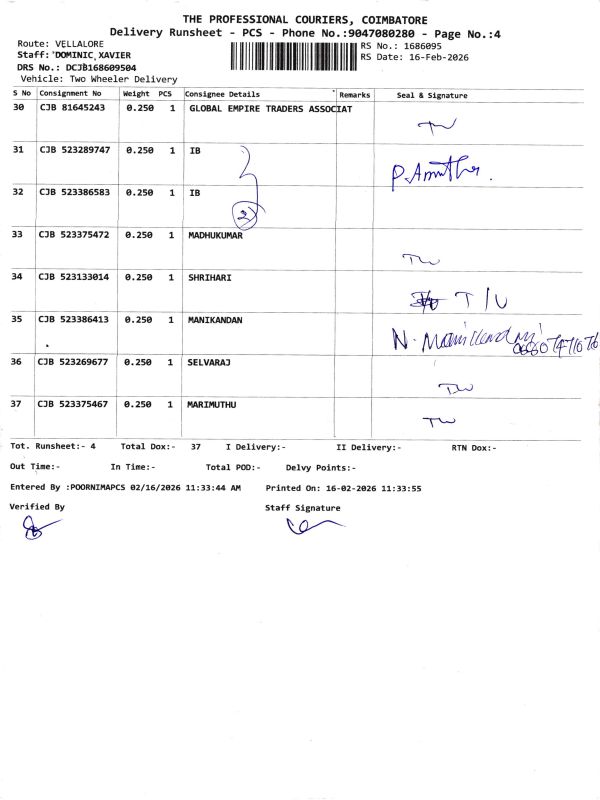 THE PROFESSIONAL COURIERS, COIMBATORE
Delivery Runsheet - PCS - Phone No.:9047080280 - Page No.:4
Route: VELLALORE
Staff: DOMINIC XAVIER
DRS No.: DCJB168609504
Vehicle: Two Wheeler Delivery
RS No.: 1686095
RS Date: 16-Feb-2026
S No Consignment No Weight PCS Consignee Details Remarks Seal & Signature
30 CJB 81645243 0.250 1 GLOBAL EMPIRE TRADERS ASSOCIAT
31 CJB 523289747 0.250 1 IB
P. Amutha.
32 CJB 523386583 0.250 1 IB
2
33 CJB 523375472 0.250 1 MADHUKUMAR
34 CJB 523133014 0.250 1 SHRIHARI
T/U
35 CJB 523386413 0.250 1 MANIKANDAN
N. Manikandan
36 CJB 523269677 0.250 1 SELVARAJ
37 CJB 523375467 0.250 1 MARIMUTHU
Tot. Runsheet:- 4 Total Dox:- 37 I Delivery:- II Delivery:- RTN Dox:-
Out Time:- In Time:- Total POD:- Delvy Points:-
Entered By :POORNIMAPCS 02/16/2026 11:33:44 AM Printed On: 16-02-2026 11:33:55
Verified By Staff Signature